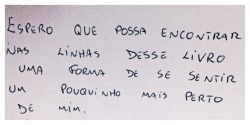 ESPERO QUE POSSA ENCONTRAR
NAS LINHAS DESSE LIVRO
UMA FORMA DE SE SENTIR
UM POUQUINHO MAIS PERTO
DE MIM.